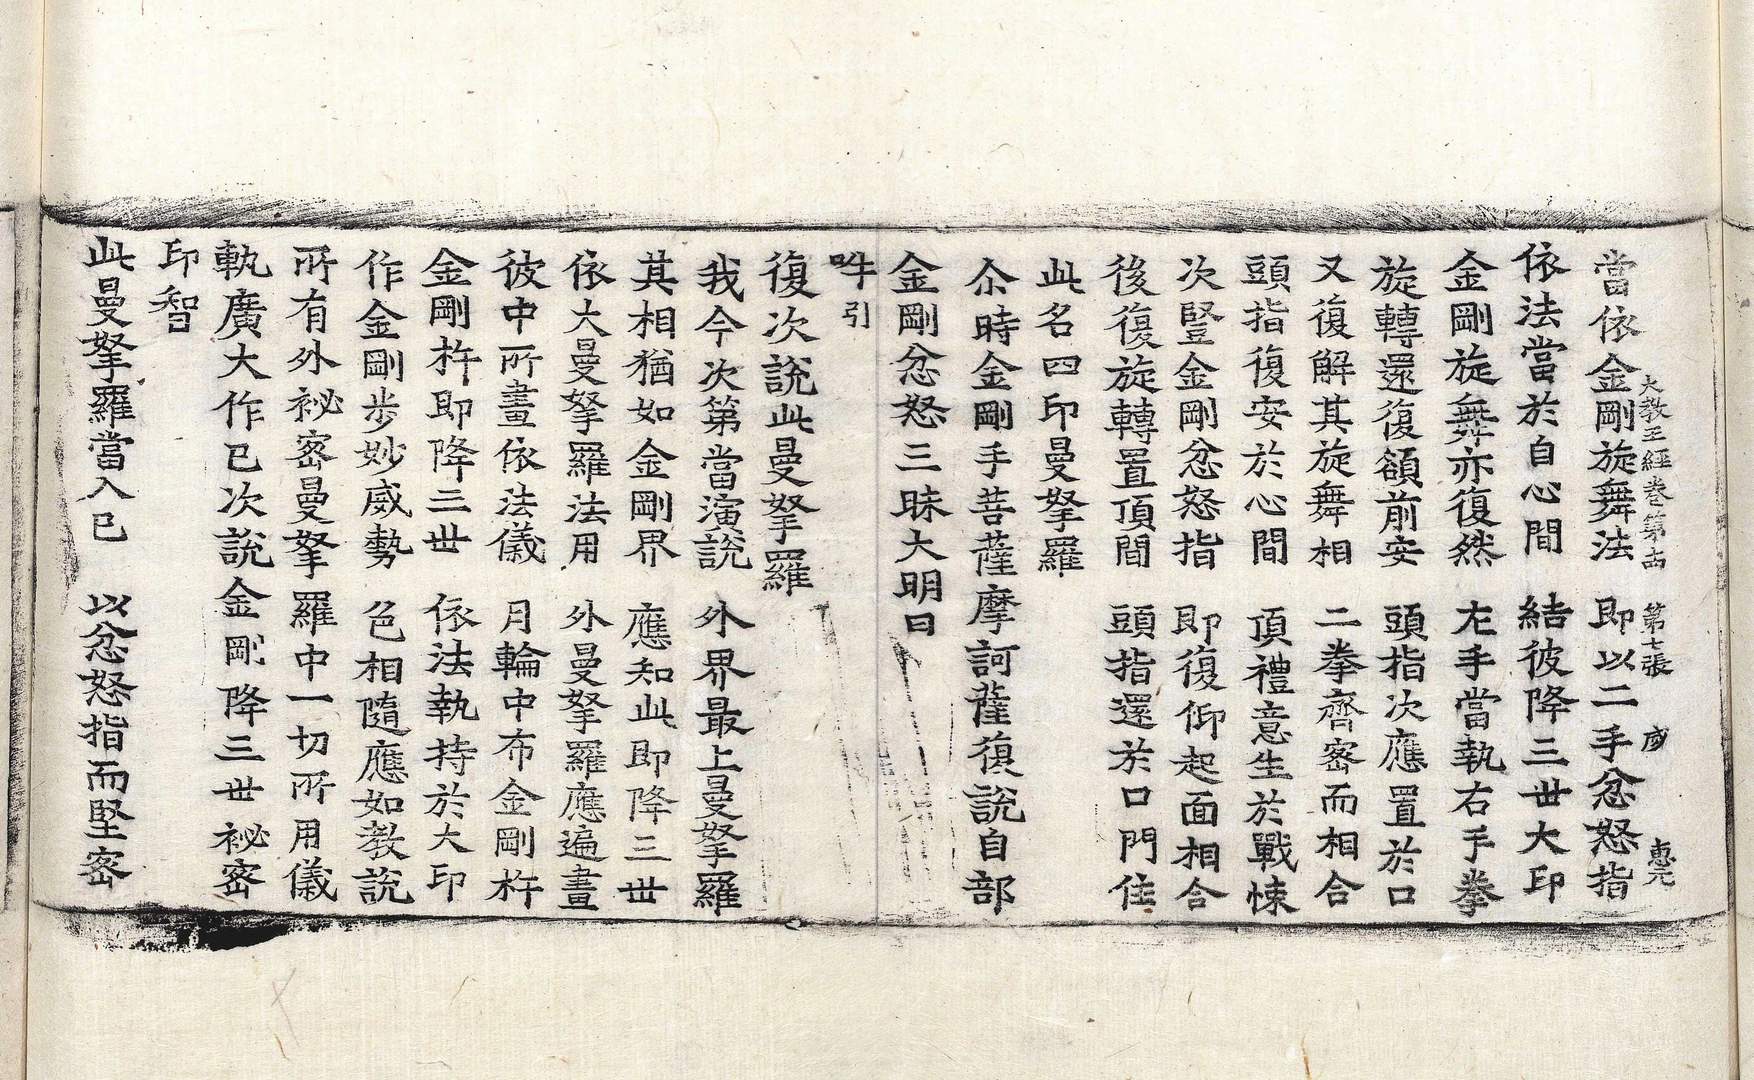 大教王經卷第十四　第七張　盛　惠元
當依金剛旋舞法　即以二手忿怒指
依法當於自心間　結彼降三世大印
金剛旋舞亦復然　左手當執右手拳
旋轉還復頟前安　頭指次應置於口
又復解其旋舞相　二拳齊密而相合
頭指復安於心間　頂禮意生於戰悚
次豎金剛忿怒指　即復仰起面相合
後復旋轉置頂間　頭指還於口門住
此名四印曼拏羅
尒時金剛手菩薩摩訶薩復說自部
金剛忿怒三昧大明曰
吽引
復次說此曼拏羅
我今次第當演說　外界最上曼拏羅
其相猶如金剛界　應知此即降三世
依大曼拏羅法用　外曼拏羅應遍畫
彼中所畫依法儀　月輪中布金剛杵
金剛杵即降三世　依法執持於大印
作金剛步妙威勢　色相隨應如教說
所有外祕密曼拏羅中一切所用儀
軌廣大作已次說金剛降三世祕密
印智
此曼拏羅當入已　以忿怒指而堅密